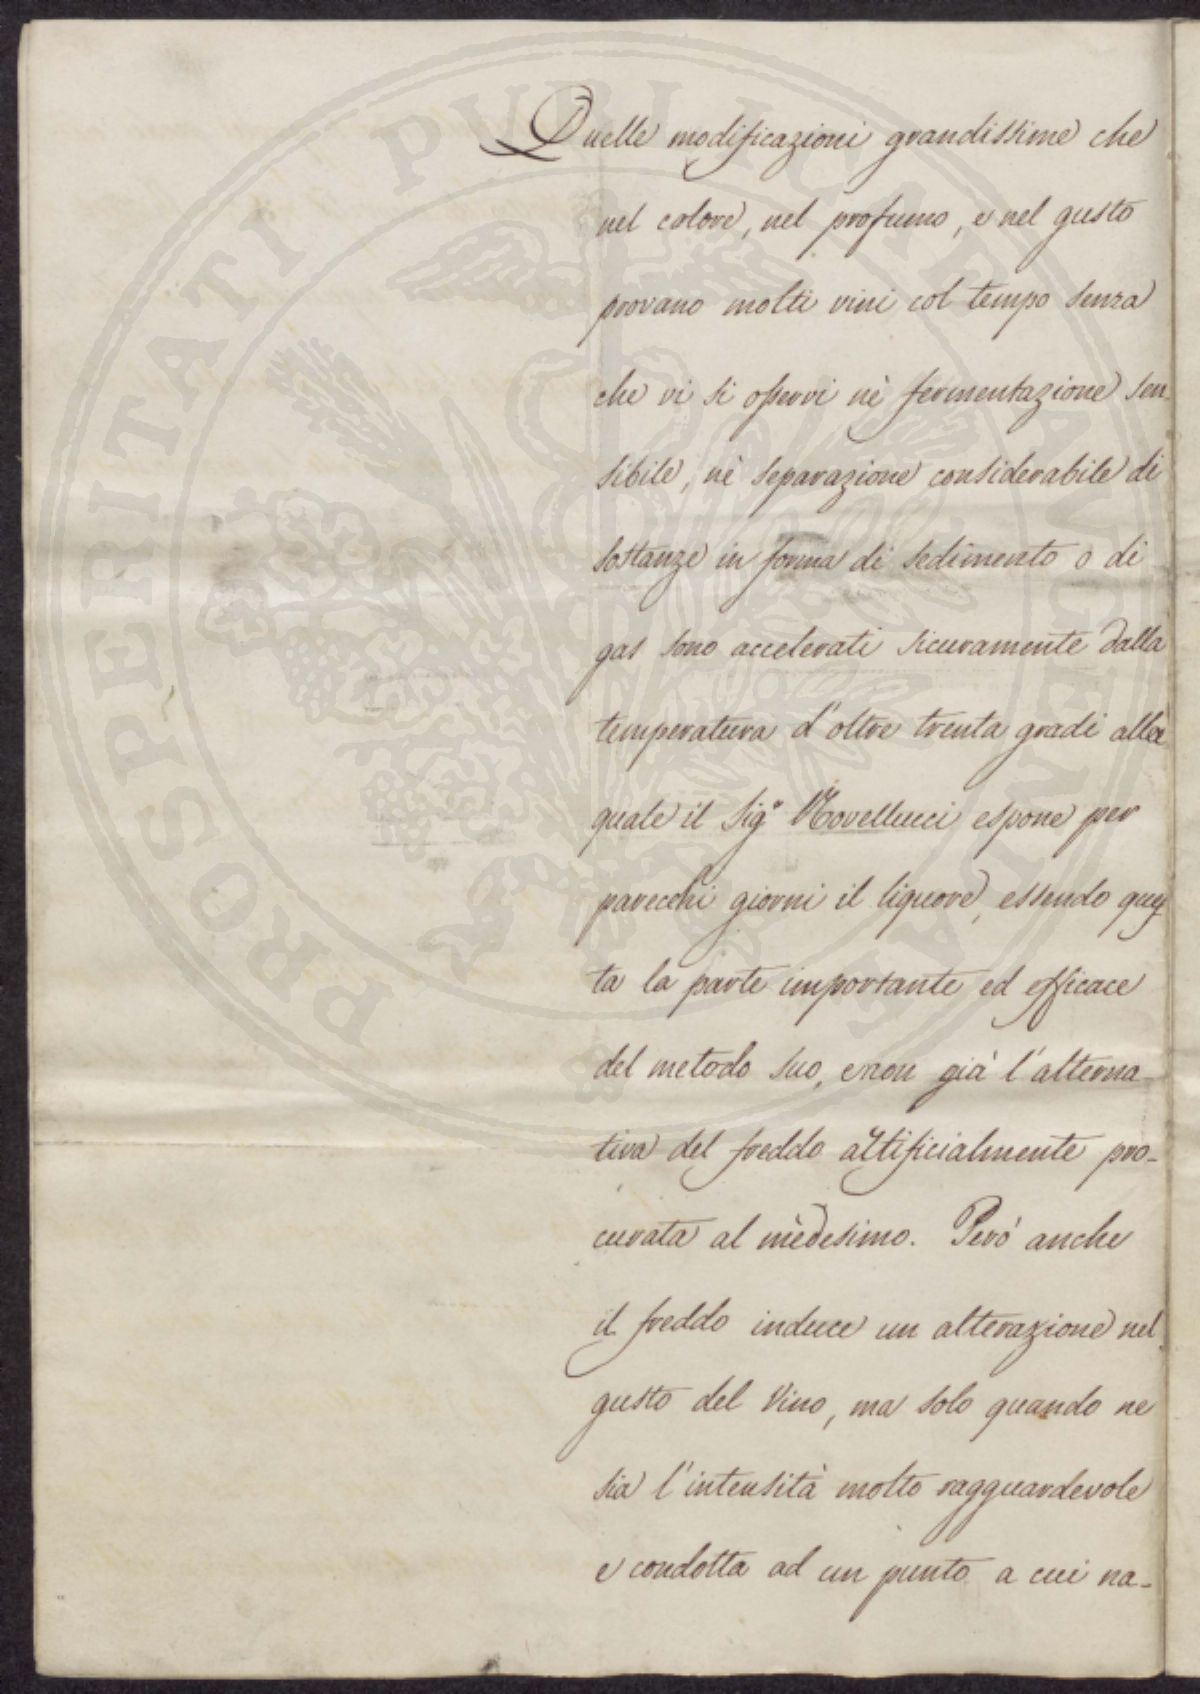 Quelle modificazioni grandissime che
nel colore, nel profumo, e nel gusto
provano molti vini col tempo senza
che vi si osservi nè fermentazione sen-
sibile, nè separazione considerabile di
sostanze in forma di sedimento o di
gas sono accelerati sicuramente dalla
temperatura d'oltre trenta gradi alla
quale il Sig.e Novellucci espone per
parecchi giorni il liquore, essendo ques
ta la parte importante ed efficace
del metodo suo, e non già l'alterna-
tiva del freddo artificialmente pro-
curata al medesimo. Però anche
il freddo induce un alterazione nel
gusto del Vino, ma solo quando ne
sia l'intensità molto ragguardevole
e condotta ad un punto a cui na-
PROSPERITATI PUBLICAE AUGENDAE